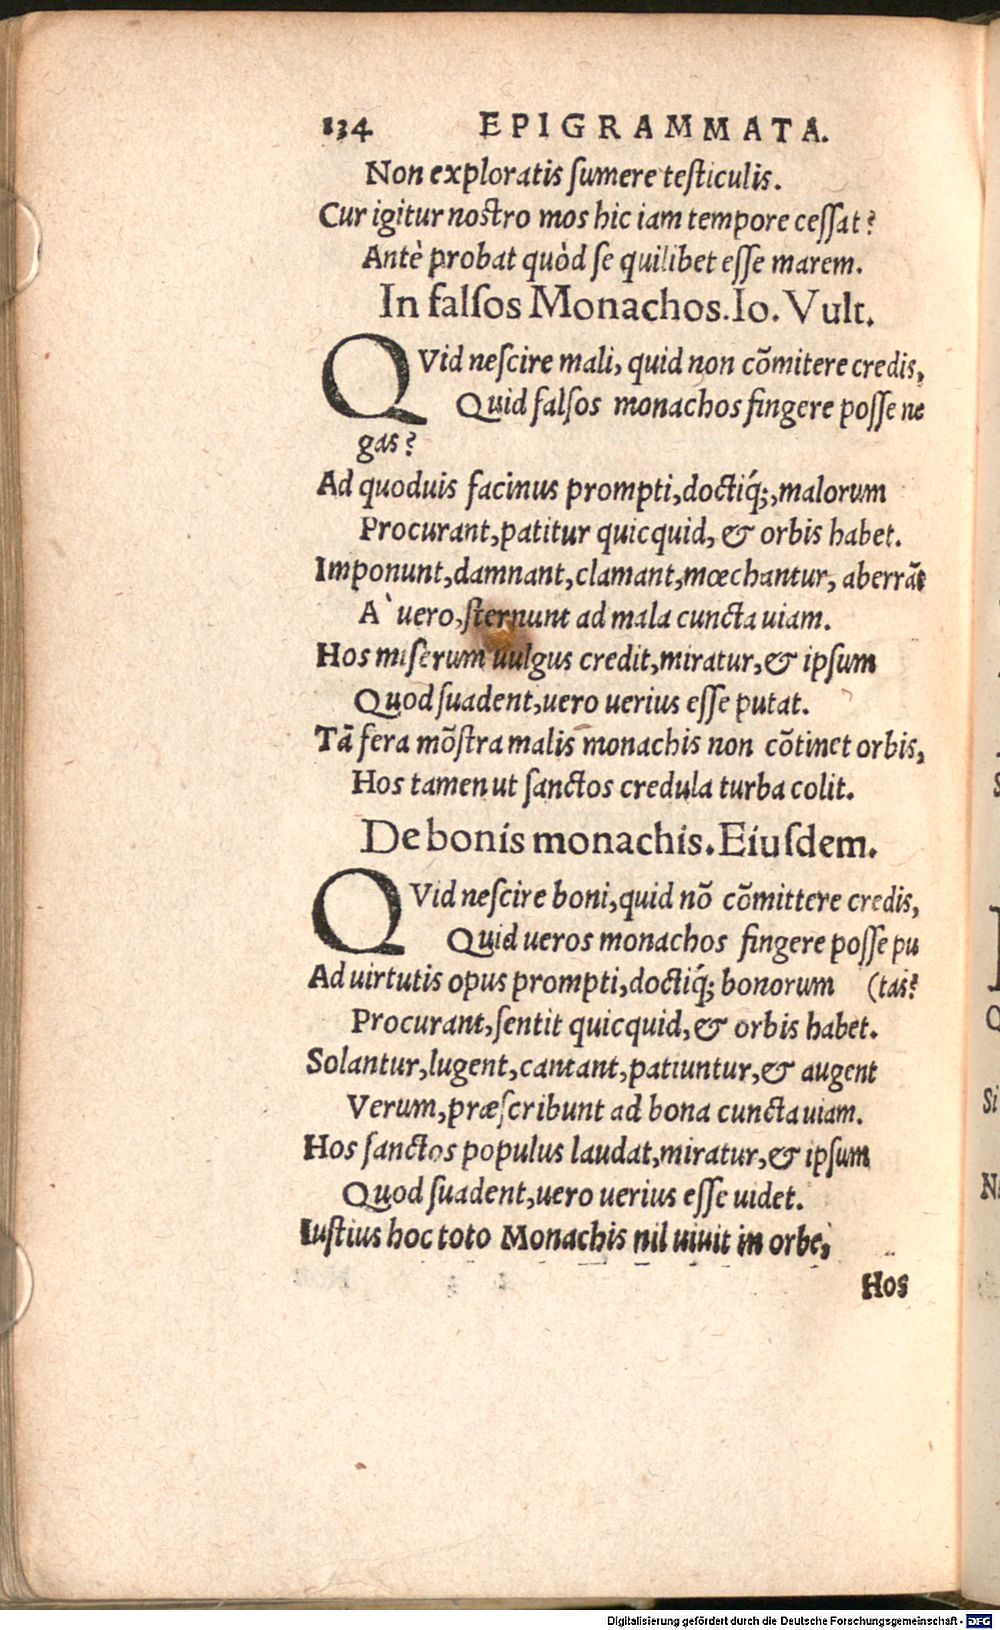 134 EPIGRAMMATA.
Non exploratis ſumere teſticulis.
Cur igitur noſtro mos hic iam tempore ceſſat?
Antè probat quòd ſe quilibet eſſe marem.
In falſos Monachos. Io. Vult.
QVid neſcire mali, quid non cōmitere credis,
Quid falſos monachos fingere poſſe ne
gas?
Ad quoduis facinus prompti, doctiq́;, malorum
Procurant, patitur quicquid, & orbis habet.
Imponunt, damnant, clamant, mœchantur, aberrāt
A` uero, ſternunt ad mala cuncta uiam.
Hos miſerum uulgus credit, miratur, & ipſum
Quod ſuadent, uero uerius eſſe putat.
Tā fera mōſtra malis monachis non cōtinet orbis,
Hos tamen ut ſanctos credula turba colit.
De bonis monachis. Eiuſdem.
QVid neſcire boni, quid nō cōmittere credis,
Quid ueros monachos fingere poſſe pu
Ad uirtutis opus prompti, doctiq́; bonorum (tas?
Procurant, ſentit quicquid, & orbis habet.
Solantur, lugent, cantant, patiuntur, & augent
Verum, præſcribunt ad bona cuncta uiam.
Hos ſanctos populus laudat, miratur, & ipſum
Quod ſuadent, uero uerius eſſe uidet.
Iuſtius hoc toto Monachis nil uiuit in orbe,
Hos
Digitalisierung gefördert durch die Deutsche Forschungsgemeinschaft - DFG